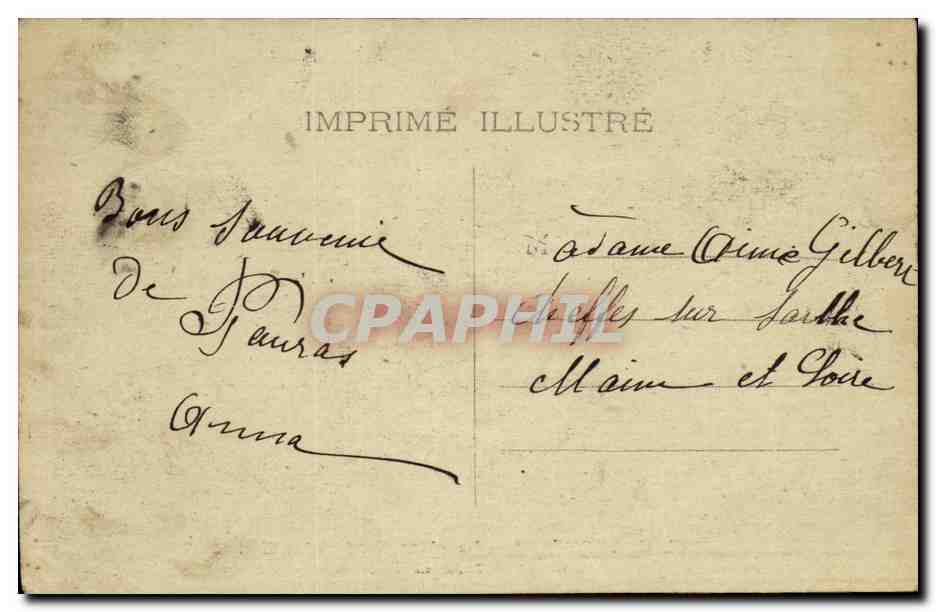 IMPRIMÉ ILLUSTRÉ
Bons Souvenir
de
Anna
Madame Aimé Gilbert
Cheffes sur Sarthe
Maine et Loire
CPAPHIL